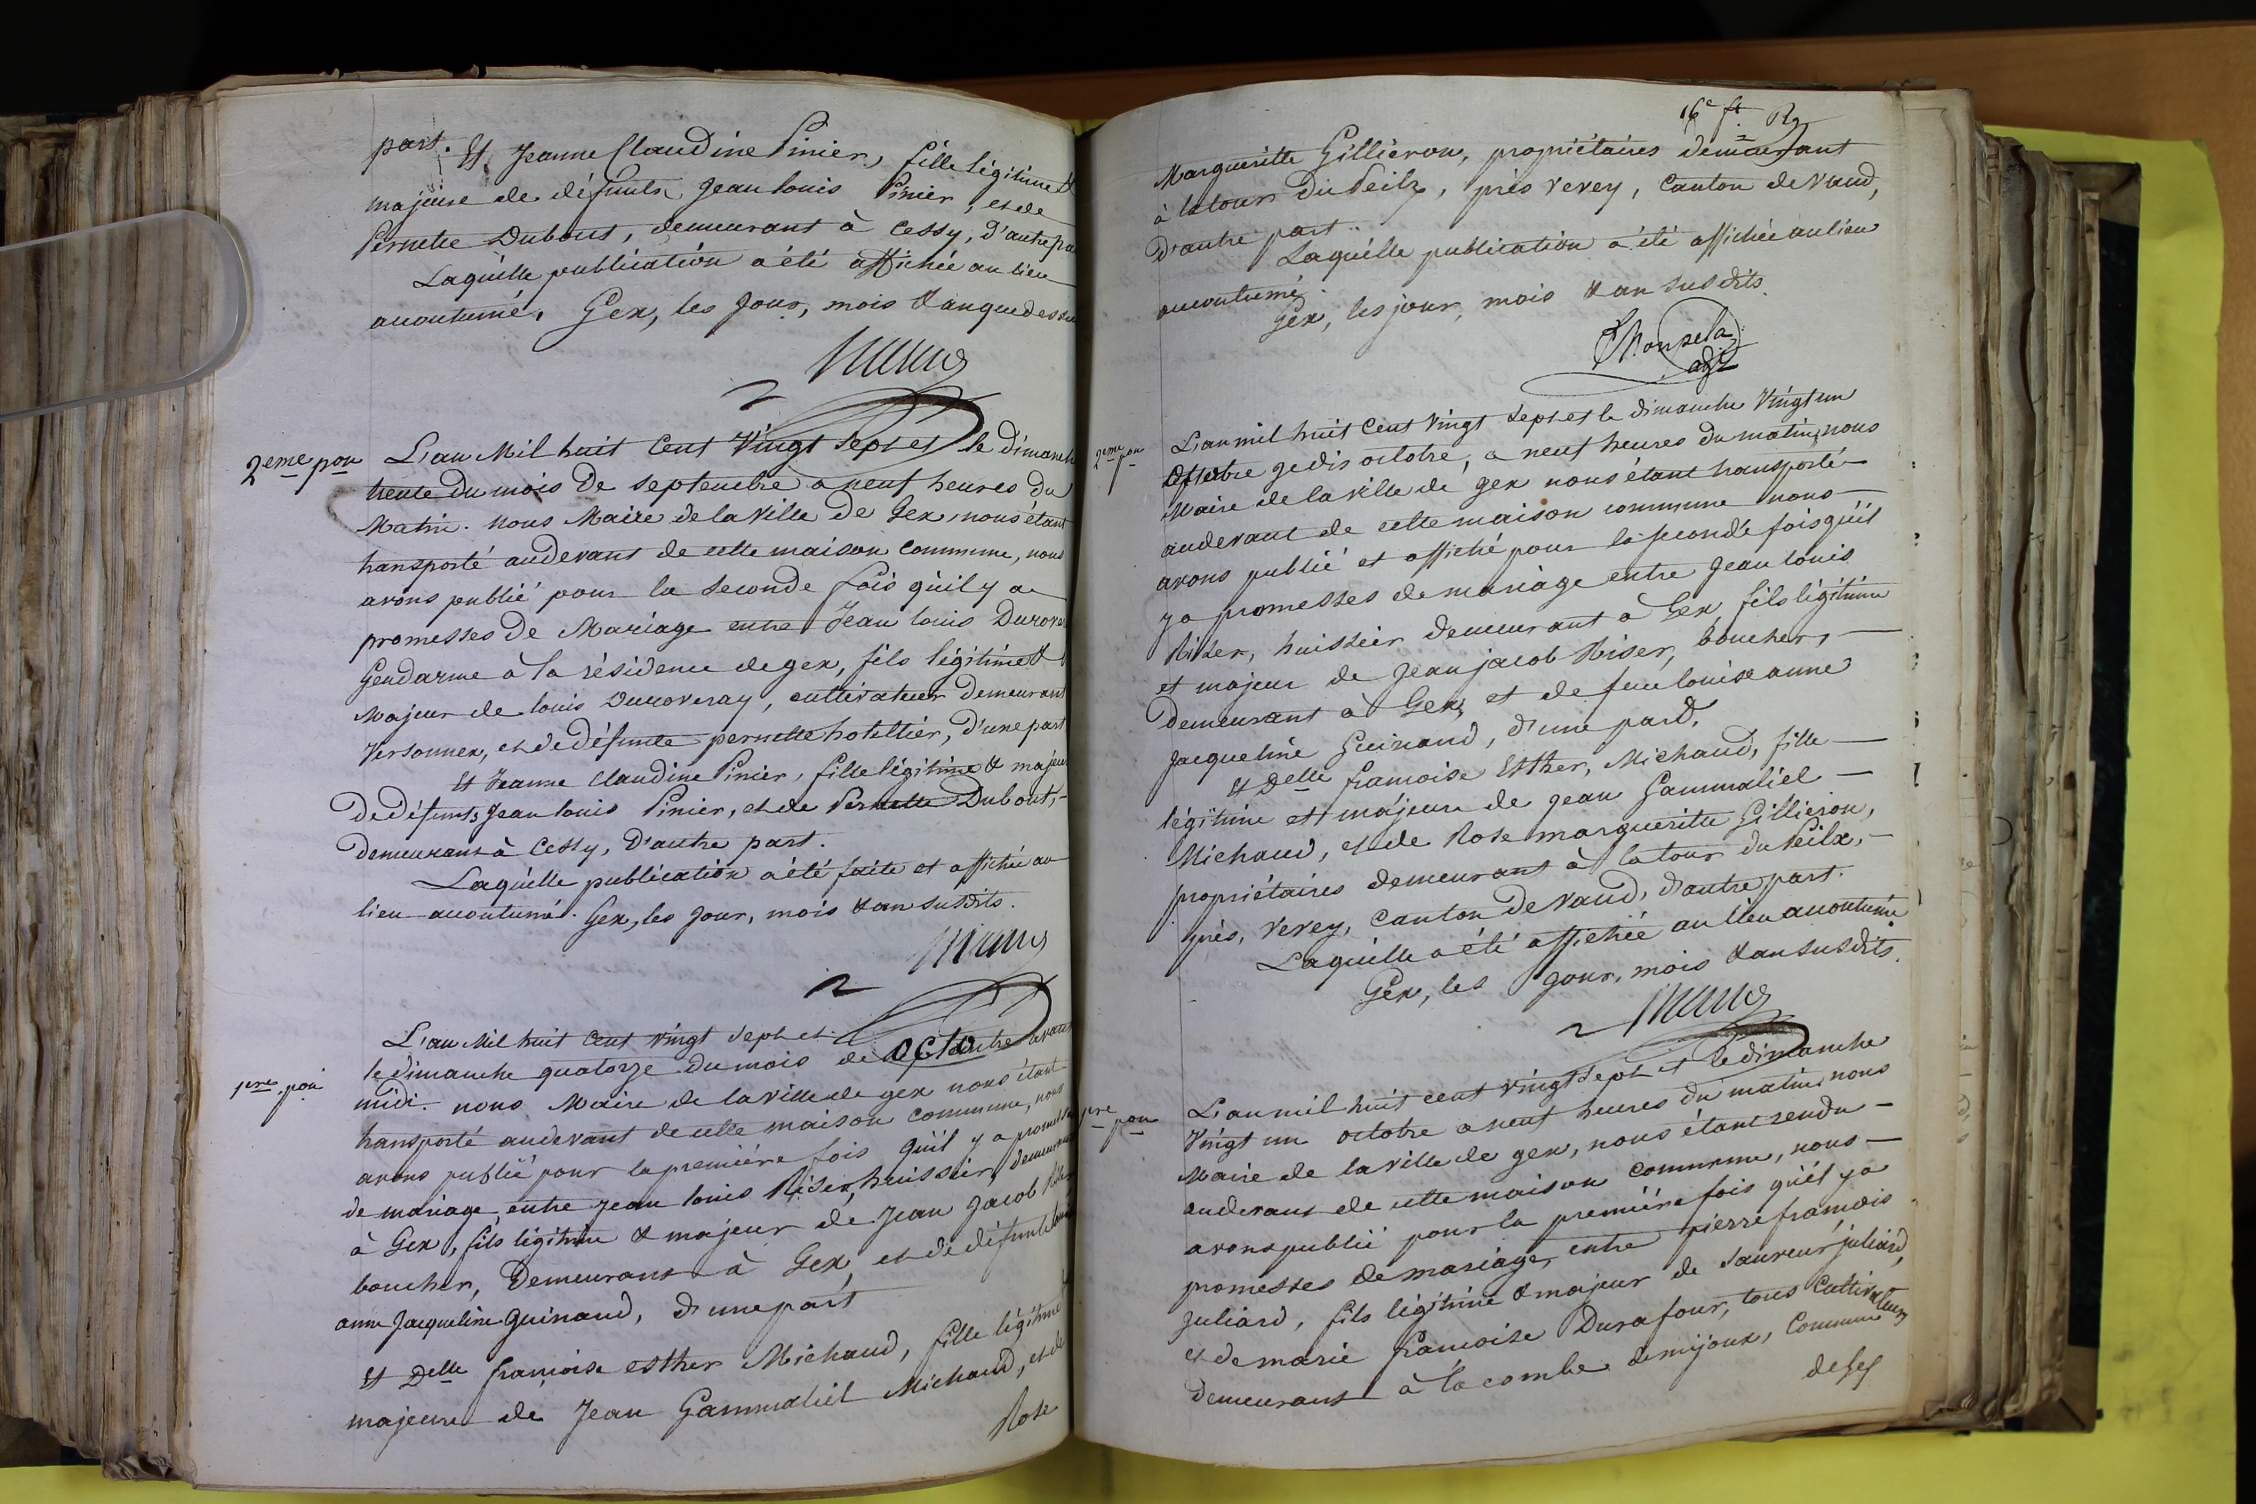 part. Et Jeanne Claudine Pinier, fille légitime &
majeure de défunts Jean Louis Pinier, et de
Pernette Dubout, demeurant à Cessy, d'autre pa
Laquelle publication a été affichée au lieu
accoutumé. Gex, les jour, mois & an que dessus
2eme pon L'an Mil huit Cent Vingt Sept et le dimanche
trente du mois De septembre a neuf heures du
Matin. nous Maire de la Ville de Gex, nous étant
transporté audevant de cette maison Commune, nous
avons publié pour la Seconde fois qu'il y a
promesses De Mariage entre Jean Louis
Gendarme à la résidence de gex, fils légitime &
Majeur de Louis Duroveray, cultivateur demeurant
Versonnex, et de défunte pernette hoteltier, D'une part
Et Jeanne Claudine Pinier, fille légitime & majeure
De défunts Jean Louis Pinier, et de Pernette Dubout,-
demeurant à Cessy, D'autre part.
Laquelle publication a été faite et affichée au
lieu accoutumé. Gex, les jour, mois & an susdits.
L'an Mil huit Cent vingt Sept et
1ere pon le dimanche quatorze du mois de octobre avant
midi. nous Maire de la Ville de gex nous étant
transporté audevant de cette maison Commune, nous
avons publié pour la première fois qu'il y a promesses
de mariage, entre Jean Louis Riser, huissier, demeurant
à Gex, fils légitime & majeur de Jean Jacob
boucher, Demeurant à Gex, et de défunte
anne Jacqueline Guinand, d'une part
Et Delle françoise esther Michaud, fille légitime
majeure de Jean Gammaliel Michaud, et de
Rose
16e ft.
Marguerite Gilliéron, propriétaires demeurant
à la tour Du Peilz, près vevey, Canton de Vaud,
D'autre part.
Laquelle publication a été affichée au lieu
accoutumé.
Gex, les jour, mois & an susdits.
adjt
2eme pon L'an mil huit Cent Vingt Sept et le dimanche Vingt un
octobre, a neuf heures du matin, nous
Maire de la ville de gex nous étant transporté
audevant de cette maison commune nous
avons publié et affiché pour la seconde fois qu'il
y a promesses de mariage entre Jean Louis
Riser, huissier demeurant à Gex fils légitime
et majeur de Jean jacob Riser, boucher,
Demeurant à Gex, et de feue louise anne
Jacqueline Guinand, d'une part,
Et Delle françoise Esther, Michaud, fille
légitime et majeure de Jean Gammaliel
Michaud, et de Rose marguerite Gilliéron,
propriétaires demeurant à la tour du Peilz,
près, Vevey, Canton De Vaud, d'autre part.
Laquelle a été affichée au lieu accoutumé
Gex, les jour, mois & an susdits.
1ere pon L'an mil huit cent vingt Sept et le dimanche
Vingt un octobre a neuf heures du matin, nous
Maire de la ville de gex, nous étant rendu
audevant de cette maison commune, nous
avons publié pour la première fois qu'il y a
promesses de mariage, entre pierre françois
Juliard, fils légitime & majeur de Sauveur juliard,
et de marie françoise Durafour, tous Cultivateurs
demeurant à la combe de mijoux, Commune
de Gex